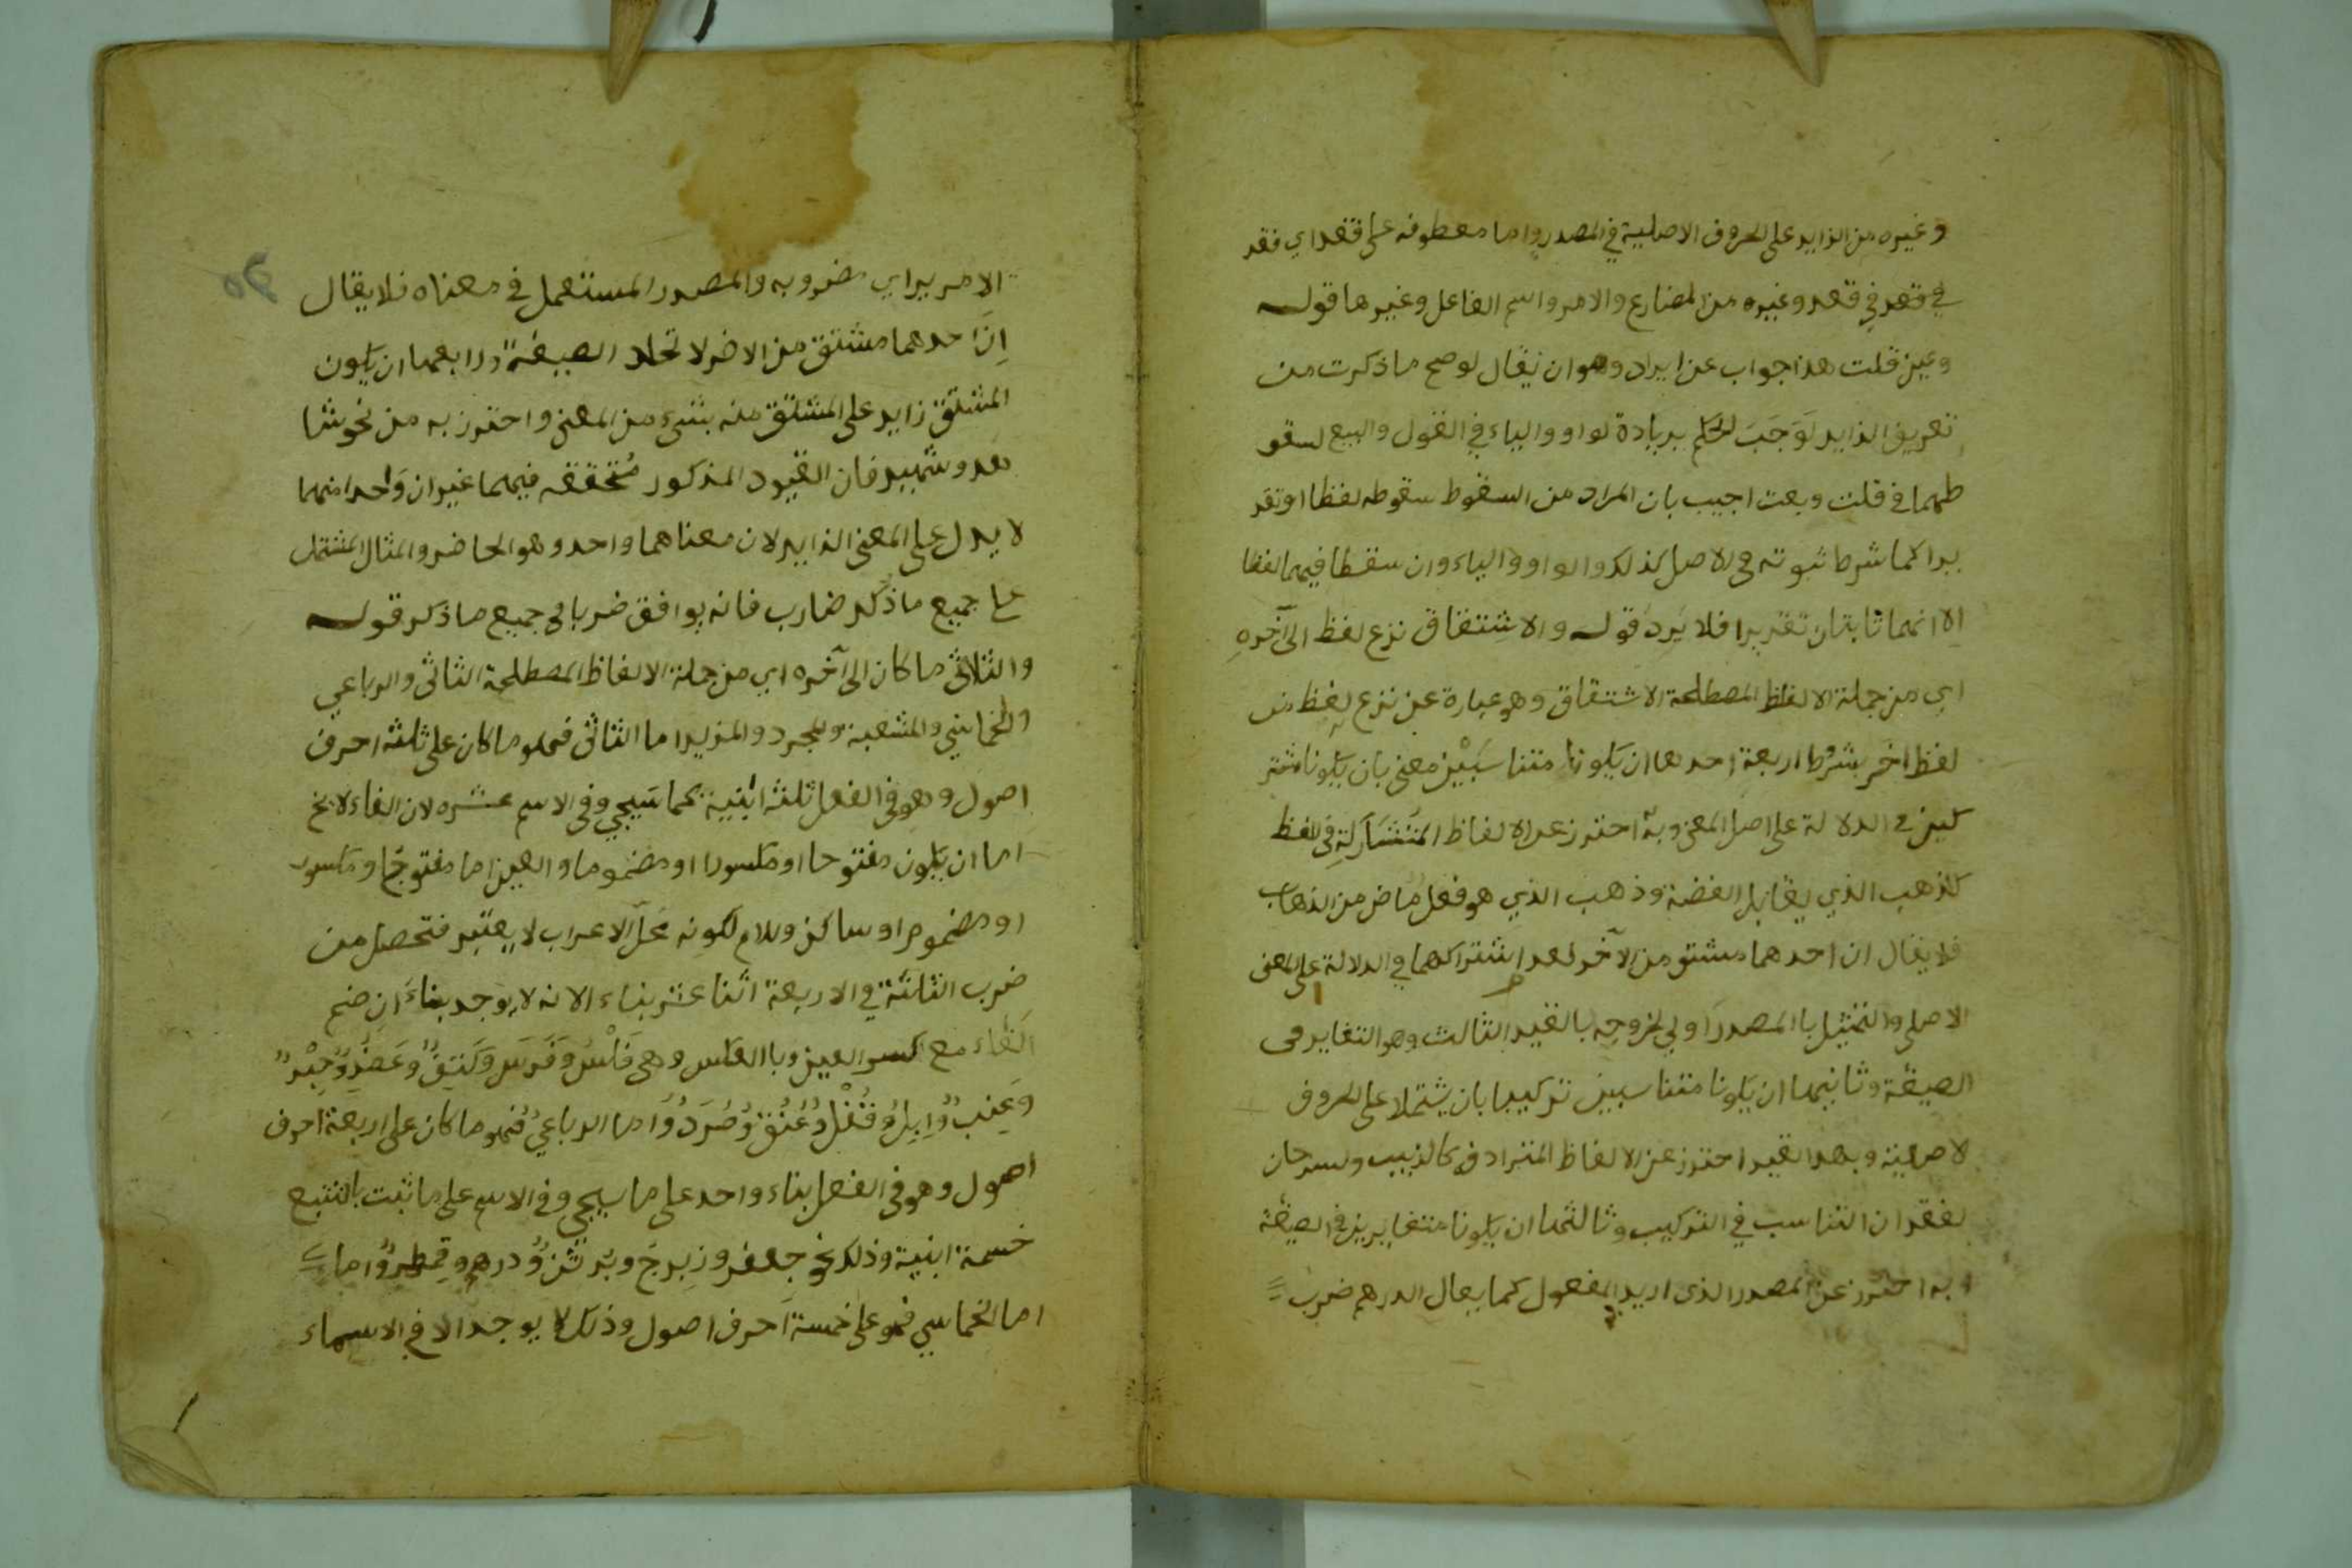 وغيره من الزايد على الحروف الاصلية في المصدر واما معطوفه على فقعد اي فقد
في قعد في قعد وغيره من المضارع والامر واسم الفاعل وغيرها قوله
وعين قلت هذا جواب عن ايراد وهو ان يقال لو صح ما ذكرت من
تعريف الزايد لَوَجَبَ الحكم بزيادة لواو والياء في القول والبيع لسقو
طهما في قلت وبعت اجيب بان المراد من السقوط سقوطه لفظا او تقد
يرا كما شرط ثبوته في الاصل كذلك والواو والياء وان سقطا فيهما لفظا
الا انهما ثابتان تقديرا فلا يَرِد قوله والاشتقاق نزع لفظ الى آخره
اي من جملة الالفاظ المصطلحة الاشتقاق وهو عبارة عن نزع لفظ من
لفظ اخر بشرط اربعة احدها ان يكونا متناسبَيْن معنى بان يكونا مشتر
كين في الدلالة على اصل المعنى وبه احترز عن الالفاظ المتشاركة في اللفظ
كذهب الذي يقابل الفضة وذهب الذي هو فعل ماض من الذهاب
فلا يقال ان احدهما مشتق من الآخر لعدم اشتراكهما في الدلالة على المعنى
الاصلي والتمثيل بالمصدر اولي لخروجه بالقيد الثالث وهو التغاير في
الصيغة وثانيهما ان يكونا متناسبين تركيبا بان يشتملا على الحروف
لاصلية وبهذا القيد احترز عن الالفاظ المترادفة كالذيب وسرحان
لفقدان التناسب في التركيب وثالثها ان يكونا متغايرين في الصيغة
وبه احترز عن المصدر الذي اريد به المفعول كما يقال الدرهم ضرب
الامير اي مضروبه والمصدر المستعمل في معناه فلا يقال
اِنَّ احدهما مشتق من الاخر لاتحاد الصيغة ورابعها ان يكون
المشتق زايد على المشتق منه بشيء من المعنى واحترز به من نحو شا
هد وشهيد فان القيود المذكور مُتحققه فيهما غير ان وَاحدا منهما
لا يدل على المعنى الزايد لان معناهما واحد وهو الحاضر والمثال المشتمل
على جميع ما ذكر ضارب فانه يوافق ضربا في جميع ما ذكر قوله
والثلاثي ما كان الى آخره اي من جملة الالفاظ المصطلحة الثلاثي والرباعي
والخماسي والمشعبة والمجرد والمزيد اما الثلاثي فهو ما كان على ثلثة احرف
اصول وهو في الفعل ثلثة ابنية كما سيجي وفي الاسم عشره لان الفاء لا يخ
اما ان يكون مفتوحا او مكسورا او مضموما والعين اما مفتوح او مكسور
او مضموم او ساكن واللام لكونه محلّ الاعراب لا يعتبر فتحصل من
ضرب الثلثة في الاربعة اثنا عشر بناء الا انه لا يوجد بناءَ ان ضم
الفاء مع كسر العين وبالعكس وهي فَلْسٌ وَفَرَس وَكَتِفٌ وعَضُدٌ وَحِبْرٌ
وَعِنَبٌ وَاِبِلٌ وَقُفْلٌ وَعُنُقٌ وَصُرَدٌ وَاما الرباعي فهو ما كان على اربعة احرف
اصول وهو في الفعل بناء واحد على ما سيجي وفي الاسم على ما ثبت بالتتبع
خمسة ابنية وذلك نحو جعفر وزِبرج وبُرثُن ودرهم وقِمطر واما
اما الخماسي فهو على خمسة احرف اصول وذلك لا يوجد الا في الاسماء